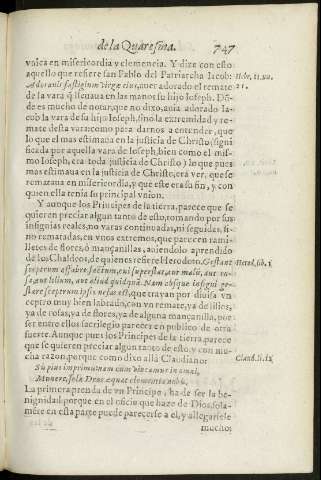 de la Quaresma. 747
vnica en misericordia y clemencia. Y dize con esto
aquello que refiere san Pablo del Patriarcha Iacob:
Hebr. 11. nu. 21.
Adorauit fastigium virgæ eius, auer adorado el remate
de la vara q̃ lleuaua en las manos su hijo Ioseph. Dõ-
de es mucho de notar, que no dixo, auia adorado Ia-
cob la vara de su hijo Ioseph, sino la extremidad y re-
mate desta vara: como para darnos a entender, que
lo que el mas estimaua en la justicia de Christo, (signi
ficada por aquella vara de Ioseph, bien como el mis-
mo Ioseph, era toda justicia de Christo) lo que pues
mas estimaua en la justicia de Christo, erà ver, que se
remataua en misericordia, y que este era su fin, y con
quien ella tenia su principal vnion.
Y aunque los Principes de la tierra, parece que se
quieren preciar algun tanto de esto, tomando por sus
insignias reales, no varas continuadas, ni seguidas, si-
no rematadas, en vnos extremos, que parecen rami-
lletes de flores, ò mançanillas, auiendolo aprendido
de los Chaldeos, de quienes refiere Herodoto. Gestant
Herod. lib. 1
sceptrum affabre factum, cui superstat, aut malũ, aut ro-
sa, aut lilium, aut aliud quidpiã. Nam absque insigni ge-
stare sceptrum ipsis nefas est, que trayan por diuisa vn
ceptro muy bien labrado, con vn remate, ya de lilios,
ya de rosas, ya de flores, ya de alguna mançanilla, por
ser entre ellos sacrilegio parecer en publico de otra
suerte. Aunque pues los Principes de la tierra, parece
que se quieren preciar algun tanto de esto, y con mu-
cha razon, porque como dixo allà Claudiano:
Claud. li.
Sis pius imprimis nam cum vincamur in omni,
Munere, sola Deos æquat clementia nobis.
La primera prenda de vn Principe, ha de ser la be-
nignidad: porque en el oficio que haze de Dios, sola-
mẽte en esta parte puede parecerse a el, y allegarsele
mucho: